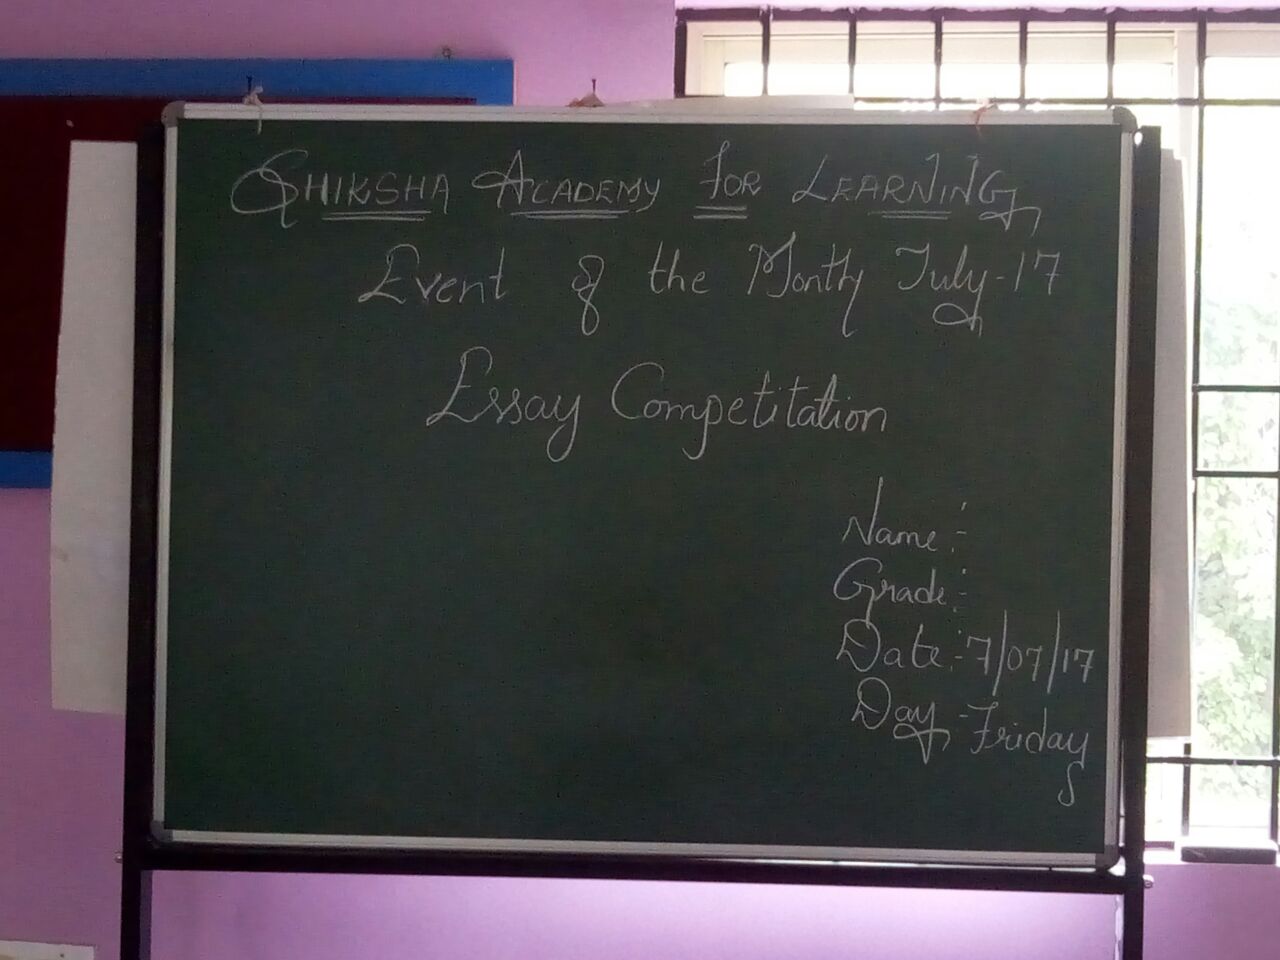 SHIKSHA ACADEMY FOR LEARNING
Event of the Month July-17
Essay Competitation
Name:-
Grade:-
Date:-7/07/17
Day-Friday